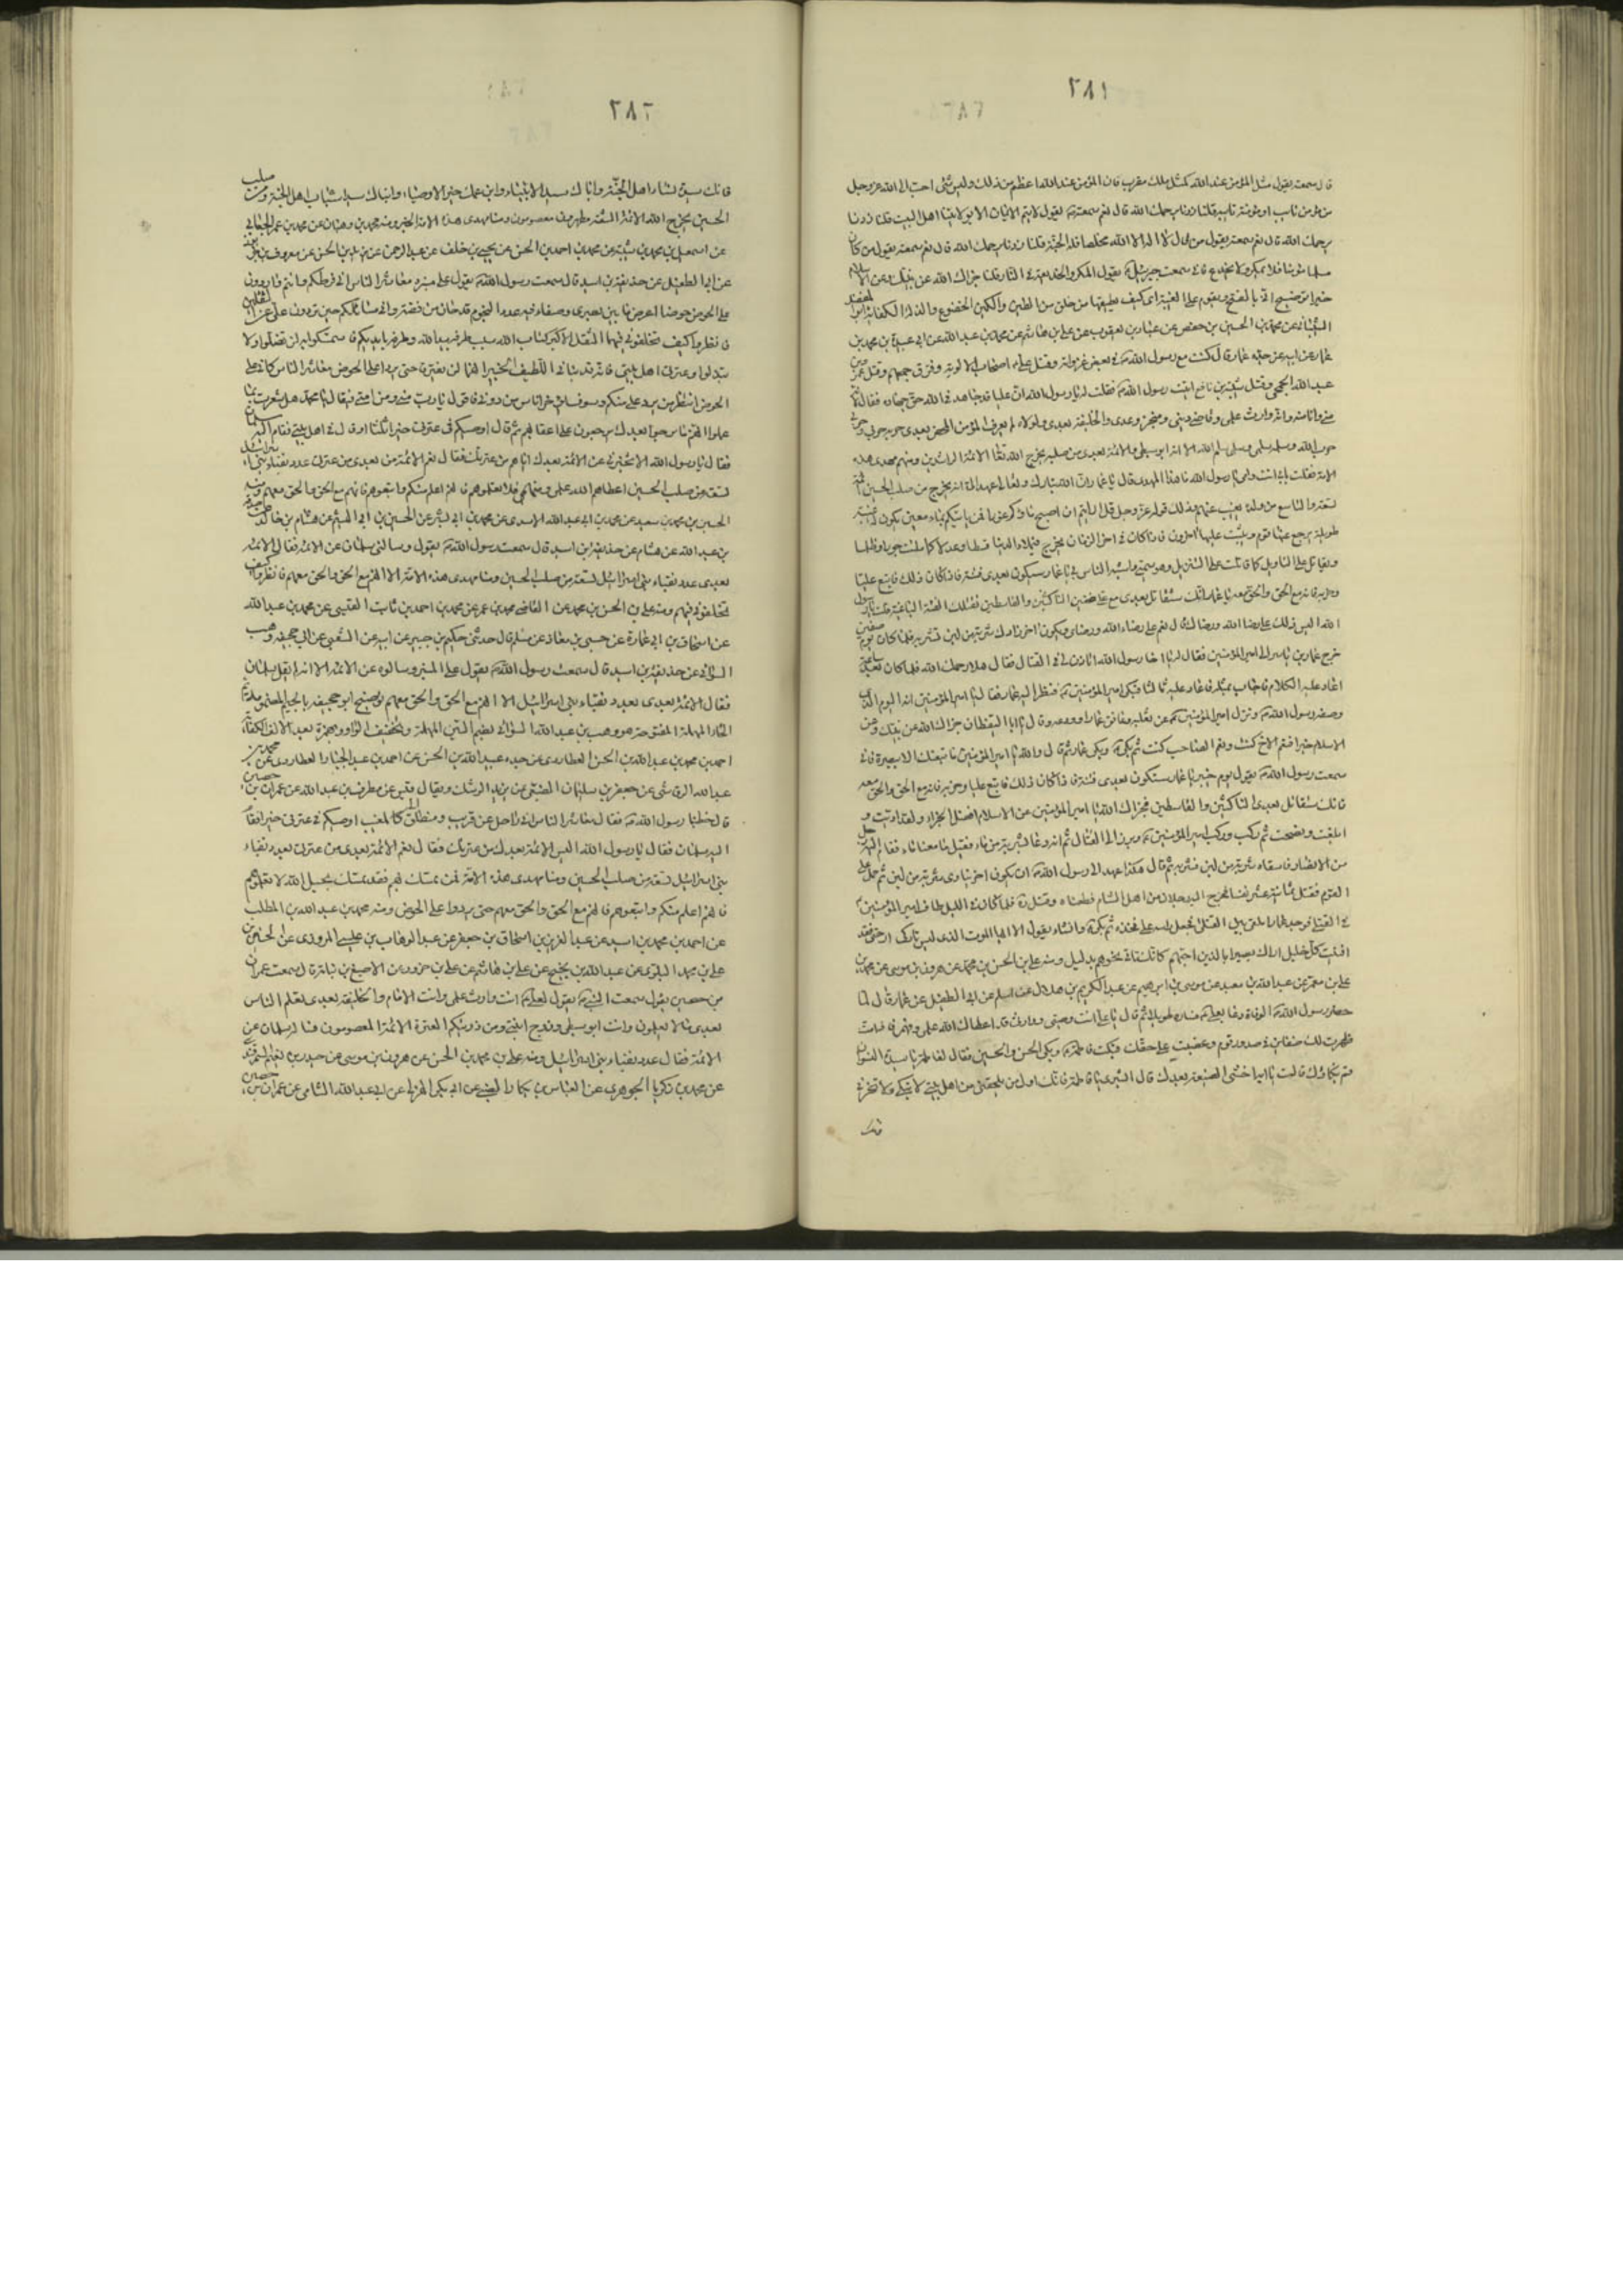 ٢٨١
قال سمعته يقول مثل المؤمن عند الله كمثل ملك مقرب فان المؤمن عند الله اعظم من ذلك وليس شئ احب الى الله عز وجل
من مؤمن تايب او مؤمنة تايبة قلنا زدنا يرحمك الله قال نعم سمعته يقول لا يتم الايمان الا بولايتنا اهل البيت قلنا زدنا
يرحمك الله قال نعم سمعته يقول من قال لا اله الا الله مخلصا فله الجنة قلنا زدنا يرحمك الله قال نعم سمعته يقول من كان
مسلما فلا يمكر ولا يخدع فانى سمعت جبرئيل يقول المكر والخديعة فى النار قلنا جزاك الله عن نبيك وعن الاسلام
الشيبانى عن محمد بن الحسين بن حفص عن عباد بن يعقوب عن على بن هاشم عن محمد بن عبد الله عن ابى عبيدة بن محمد بن
عمار عن ابيه عن جده عمار قال كنت مع رسول الله فى بعض غزواته وقتل على اصحاب الالوية وفرق جمعهم وقتل عمرو بن
عبد الله الجمحى وقتل شيبة بن نافع اتيت رسول الله فقلت له يا رسول الله ان عليا قد جاهد فى الله حق جهاده فقال لانه
منى وانا منه وانه وارث علمى وقاضى دينى ومنجز وعدى والخليفة بعدى ولولاه لم يعرف المؤمن المحض بعدى حربه حربى وحربى
حرب الله وسلمه سلمى وسلمى سلم الله الا انه ابو سبطى والائمة بعدى من صلبه يخرج الله تعالى الائمة الراشدين ومنهم مهدى هذه
الامة فقلت بابى انت وامى يا رسول الله ما هذا المهدى قال يا عمار ان الله تبارك وتعالى عهد الى انه يخرج من صلب الحسين ائمة
تسعة والتاسع من ولده يغيب عنهم وذلك قوله عز وجل قل ارايتم ان اصبح ماؤكم غورا فمن ياتيكم بماء معين يكون له غيبة
طويلة يرجع عنها قوم ويثبت عليها اخرون فاذا كان فى اخر الزمان يخرج فيملاء الدنيا قسطا وعدلا كما ملئت جورا وظلما
ويقاتل على التاويل كما قاتلت على التنزيل وهو سميى واشبه الناس بى يا عمار سيكون بعدى فتنة فاذا كان ذلك فاتبع عليا
وحزبه فانه مع الحق والحق معه يا عمار انك ستقاتل بعدى مع على صنفين الناكثين والقاسطين ثم تقتلك الفئة الباغية قلت يا رسول
الله اليس ذلك على رضا الله ورضاك قال نعم على رضاء الله ورضاى ويكون اخر زادك شربة من لبن تشربه فلما كان يوم صفين
خرج عمار بن ياسر الى امير المؤمنين فقال له يا اخا رسول الله اتاذن لى فى القتال فقال مهلا رحمك الله فلما كان بعد ساعة
اعاد عليه الكلام فاجاب بمثله فاعاد عليه ثالثا فبكى امير المؤمنين فنظر اليه عمار فقال يا امير المؤمنين انه اليوم الذى
وصفه رسول الله ونزل امير المؤمنين عن بغلته وعانق عمارا وودعه وقال يا ابا اليقظان جزاك الله عن نبيك وعن
الاسلام خيرا فنعم الاخ كنت ونعم الصاحب كنت ثم بكى وبكى عمار ثم قال والله يا امير المؤمنين ما تبعتك الا ببصيرة فانى
سمعت رسول الله يقول يوم خيبر يا عمار ستكون بعدى فتنة فاذا كان ذلك فاتبع عليا وحزبه فانه مع الحق والحق معه
فانك ستقاتل بعدى الناكثين والقاسطين فجزاك الله يا امير المؤمنين عن الاسلام افضل الجزاء ولقد اديت و
ابلغت ونصحت ثم ركب وركب امير المؤمنين وبرز الى القتال ثم انه دعا بشربة من ماء فقيل ما معنا ماء فقام اليه رجل
من الانصار فاسقاه شربة من لبن فشربه ثم قال هكذا عهد الى رسول الله ان يكون اخر زادى شربة من لبن ثم حمل على
القوم فقتل ثمانية عشر نفسا فخرج اليه رجلان من اهل الشام فطعناه وقتل فلما كان فى الليل طاف امير المؤمنين
فى القتلى فوجد عمارا ملقى بين القتلى فجعل راسه على فخذه ثم بكى وانشاء يقول الا ايها الموت الذى ليس تاركى ارحنى فقد
افنيت كل خليل اراك بصيرا بالذين احبهم كانك تاتى نحوهم بدليل ومنه على بن الحسن بن محمد عن هرون بن موسى عن محمد بن
على بن معمر عن عبد الله بن معبد عن موسى بن ابراهيم عن عبد الكريم بن هلال عن اسلم عن ابى الطفيل عن عمار قال لما
حضر رسول الله الوفاة دعا بعلى فساره طويلا ثم قال يا على انت وصيى ووارثى قد اعطاك الله علمى وفهمى فاذا مت
ظهرت لك ضغاين فى صدور قوم وغصبت على حقك فبكت فاطمة وبكى الحسن والحسين فقال لفاطمة يا سيدة النسوان
مم بكاؤك قالت يا ابة اخشى الضيعة بعدك قال ابشرى يا فاطمة فانك اول من يلحقنى من اهل بيتى لا تبكى ولا تحزنى
فانك
٢٨٢
فانك سيدة نساء اهل الجنة واباك سيد الانبياء وابن عمك خير الاوصياء وابناك سيدا شباب اهل الجنة ومن صلب
الحسين يخرج الله الائمة التسعة مطهرون معصومون ومنا مهدى هذه الامة الخبر ومنه محمد بن وهبان عن محمد بن عمر الجعابى
عن اسمعيل بن محمد بن شيبة عن محمد بن احمد بن الحسن عن يحيى بن خلف عن عبد الرحمن عن يزيد بن الحسن عن معروف بن خربوذ
عن ابى الطفيل عن حذيفة بن اسيد قال سمعت رسول الله يقول على منبره معاشر الناس انى فرطكم وانتم واردون
على الحوض حوضا اعرض ما بين بصرى وصنعاء فيه عدد النجوم قدحان من فضة وانى سائلكم حين تردون على عن الثقلين
فانظروا كيف تخلفونى فيهما الثقل الاكبر كتاب الله سبب طرفه بيد الله وطرفه بايديكم فاستمسكوا به لن تضلوا ولا
تبدلوا وعترتى اهل بيتى فانه قد نبانى اللطيف الخبير انهما لن يفترقا حتى يردا على الحوض معاشر الناس كانى على
الحوض انتظر من يرد على منكم وسوف اناس من دونى فاقول يا رب منى ومن امتى فيقال يا محمد هل شعرت بما
عملوا انهم ما برحوا بعدك يرجعون على اعقابهم ثم قال اوصيكم فى عترتى خيرا ثلثا او قال فى اهل بيتى فقام اليه سلمان
فقال يا رسول الله الا تخبرنى عن الائمة بعدك اما هم من عترتك فقال نعم الائمة من بعدى من عترتى عدد نقباء بنى اسرائيل
تسعة من صلب الحسين اعطاهم الله علمى وفهمى فلا تعلموهم فانهم اعلم منكم واتبعوهم فانهم مع الحق والحق معهم ومنه
الحسين بن محمد بن سعيد عن محمد بن ابى عبد الله الاسدى عن محمد بن ابى بشر عن الحسين بن ابى الهيثم عن هشام بن خالد
بن عبد الله عن هشام عن حذيفة بن اسيد قال سمعت رسول الله يقول وساله سلمان عن الائمة فقال الائمة
بعدى عدد نقباء بنى اسرائيل تسعة من صلب الحسين ومنا مهدى هذه الامة الا انهم مع الحق والحق معهم فانظروا كيف
تخلفونى فيهم ومنه على بن الحسن بن محمد عن القاضى محمد بن عمر عن محمد بن احمد بن ثابت القيسى عن محمد بن عبد الله
عن اسحاق بن ابى عمارة عن حسين بن معاذ عن قال حدثنى حكيم بن جبير عن ابيه عن الشعبى عن ابى جحيفة وهب
السوائى عن حذيفة بن اسيد قال سمعت رسول الله يقول على المنبر وسالوه عن الائمة الا انه لم يقل سلمان
فقال الائمة بعدى بعدد نقباء بنى اسرائيل الا انهم مع الحق والحق معهم توضيح ابو جحيفة بالجيم المضمومة ثم
الحاء المهملة المفتوحة هو وهب بن عبد الله السوائى بضم السين المهملة وتخفيف الواو وهمزة بعد الالف
احمد بن محمد بن عبد الله بن الحسن العطاردى عن جده عبيد الله بن الحسن عن احمد بن عبد الجبار العطاردى عن محمد بن
عبد الله الرقاشى عن جعفر بن سليمان الضبعى عن يزيد الرشك ويقال قيس عن مطرف بن عبد الله عن عمران بن حصين
قال خطبنا رسول الله فقال معاشر الناس انى راحل عن قريب ومنطلق الى المغيب اوصيكم فى عترتى خيرا فقام
اليه سلمان فقال يا رسول الله اليس الائمة بعدك من عترتك فقال نعم الائمة بعدى من عترتى بعدد نقباء
بنى اسرائيل تسعة من صلب الحسين ومنا مهدى هذه الامة فمن تمسك بهم فقد تمسك بحبل الله لا تعلموهم
فانهم اعلم منكم واتبعوهم فانهم مع الحق والحق معهم حتى يردوا على الحوض ومنه محمد بن عبد الله بن المطلب
عن احمد بن محمد بن اسيد عن عبد العزيز بن اسحاق بن جعفر عن عبد الوهاب بن عيسى المروزى عن الحسين بن
على بن محمد البلوى عن عبد الله بن نجيح عن على بن هاشم عن على بن حزور عن الاصبغ بن نباتة قال سمعت عمران
بن حصين يقول سمعت النبى يقول لعلى انت وارث علمى وانت الامام والخليفة بعدى تعلم الناس
بعدى ما لا يعلمون وانت ابو سبطى وزوج ابنتى ومن ذريتكم العترة الائمة المعصومون فساله سلمان عن
الائمة فقال عدد نقباء بنى اسرائيل ومنه على بن محمد بن الحسن عن هرون بن موسى عن حيدر بن نعيم السمرقندى
عن محمد بن زكريا الجوهرى عن العباس بن بكار الضبى عن ابى بكر الهذلى عن ابى عبد الله الشامى عن عمران بن حصين